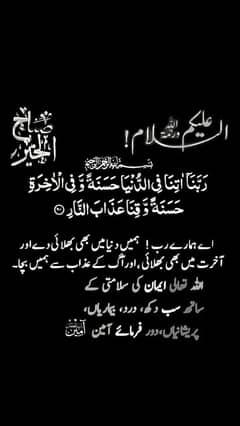 السلام علیکم ورحمۃ اللہ!
صباح الخیر
بسم اللہ الرحمن الرحیم
رَبَّنَآ اٰتِنَا فِی الدُّنْیَا حَسَنَةً وَّ فِی الْاٰخِرَةِ
حَسَنَةً وَّ قِنَا عَذَابَ النَّارِ
اے ہمارے رب ! ہمیں دنیا میں بھی بھلائی دے اور
آخرت میں بھی بھلائی ، اور آگ کے عذاب سے ہمیں بچا۔
اللہ تعالیٰ ایمان کی سلامتی کے
ساتھ سب دکھ، درد، بیماریاں،
پریشانیاں، دور فرمائے آمین آمین